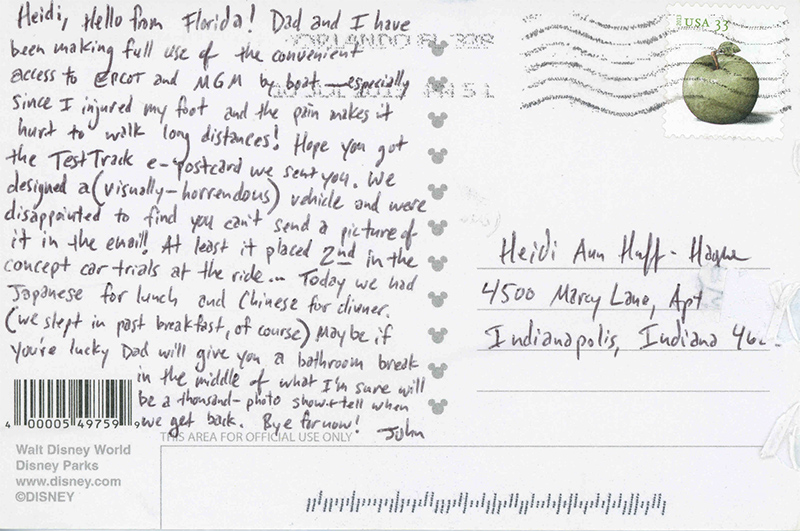 Heidi, Hello from Florida! Dad and I have
been making full use of the convenient
access to EPCOT and MGM by boat—especially
since I injured my foot and the pain makes it
hurt to walk long distances! Hope you got
the TestTrack e-postcard we sent you. We
designed a (visually-horrendous) vehicle and were
disappointed to find you can't send a picture of
it in the email! At least it placed 2nd in the
concept car trials at the ride... Today we had
Japanese for lunch and Chinese for dinner.
(we slept in past breakfast, of course) Maybe if
you're lucky Dad will give you a bathroom break
in the middle of what I'm sure will
be a thousand-photo show+tell when
we get back. Bye for now! John
4 00005 49759 9
Walt Disney World
Disney Parks
www.disney.com
©DISNEY
THIS AREA FOR OFFICIAL USE ONLY
ORLANDO FL 328
USA 33
Heidi Ann Huff-
4500 Marcy Lane, Apt
Indianapolis, Indiana 46